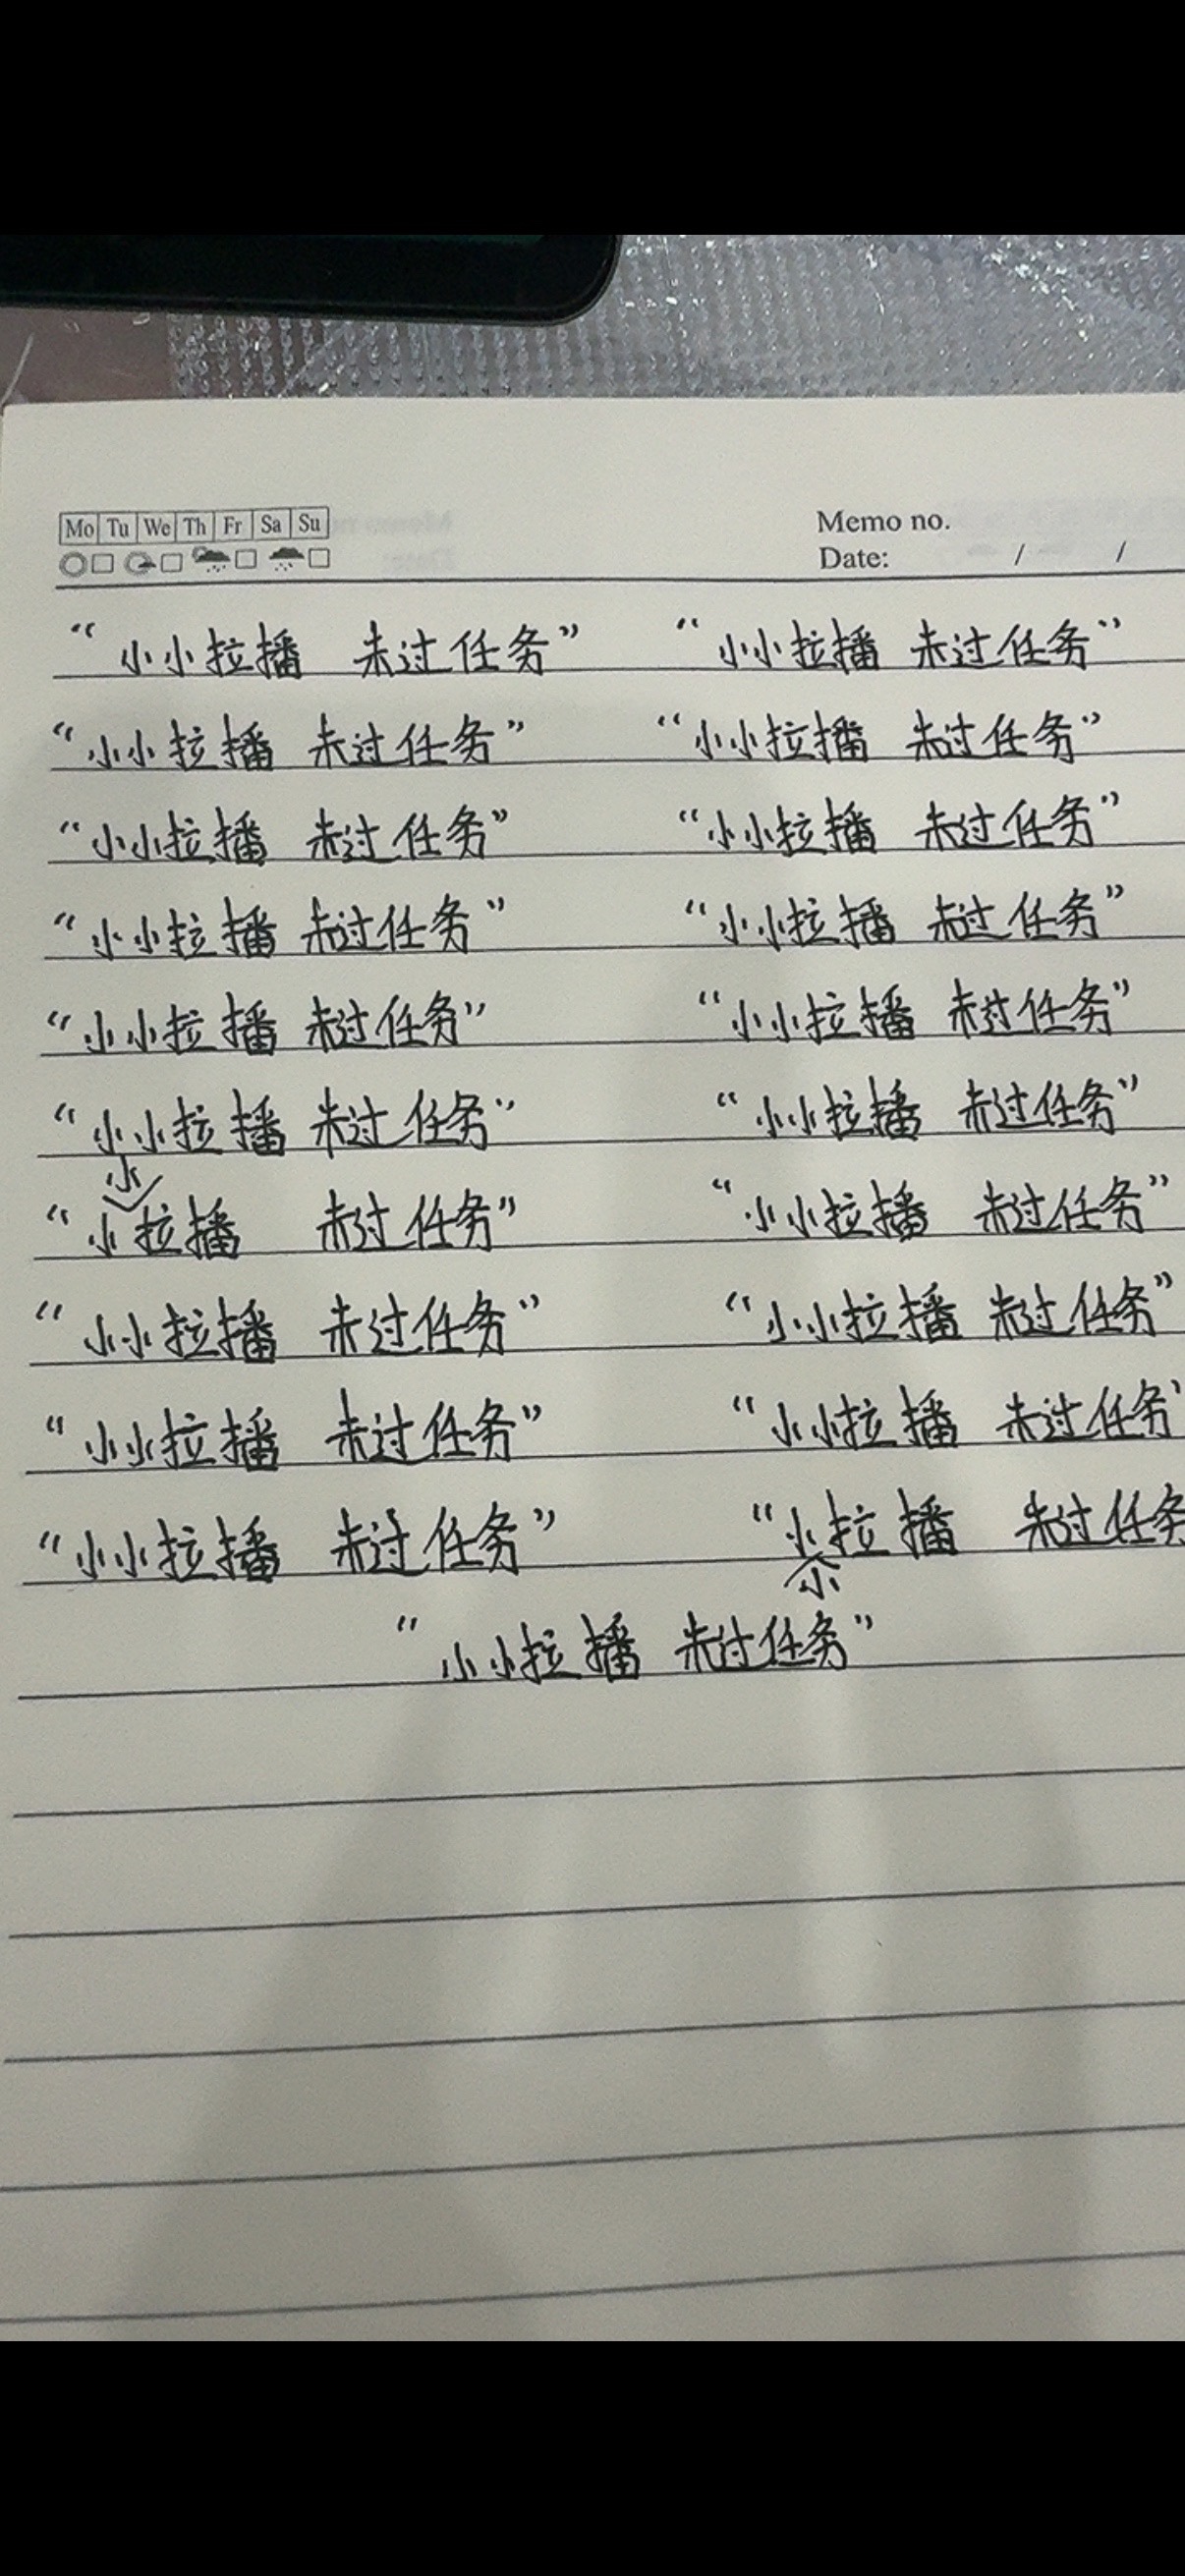 Mo Tu We Th Fr Sa Su Memo no.
Date: / /
“小小拉播 未过任务” “小小拉播 未过任务”
“小小拉播 未过任务” “小小拉播 未过任务”
“小小拉播 未过任务” “小小拉播 未过任务”
“小小拉播 未过任务” “小小拉播 未过任务”
“小小拉播 未过任务” “小小拉播 未过任务”
“小小拉播 未过任务” “小小拉播 未过任务”
“小小拉播 未过任务” “小小拉播 未过任务”
“小小拉播 未过任务” “小小拉播 未过任务”
“小小拉播 未过任务” “小小拉播 未过任务”
“小小拉播 未过任务” “小小拉播 未过任务
“小小拉播 未过任务”